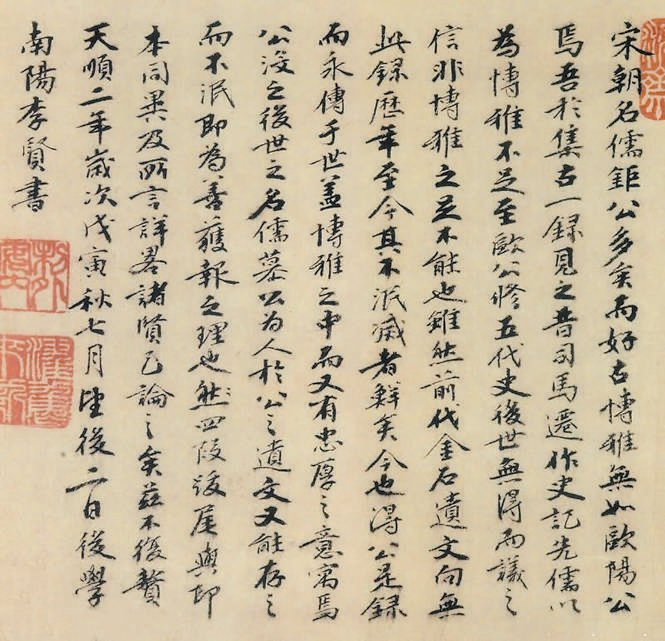 宋朝名儒鉅公多矣而好古愽雅無如歐陽公
焉吾於集古一錄見之昔司馬遷作史記先儒以
為愽雅不足至歐公修五代史後世無得而議之
信非愽雅之足不能也雖然前代金石遺文向無
此錄歷年至今其不泯滅者鮮矣今也得公是錄
而永傳于世盖愽雅之中而又有忠厚之意寓焉
公沒之後世之名儒慕公為人於公之遺文又能存之
而不泯即為善獲報之理也然四段後尾與印
本同異及所言詳畧諸賢已論之矣茲不復贅
天順二年歲次戊寅秋七月望後二日後學
南陽李賢書